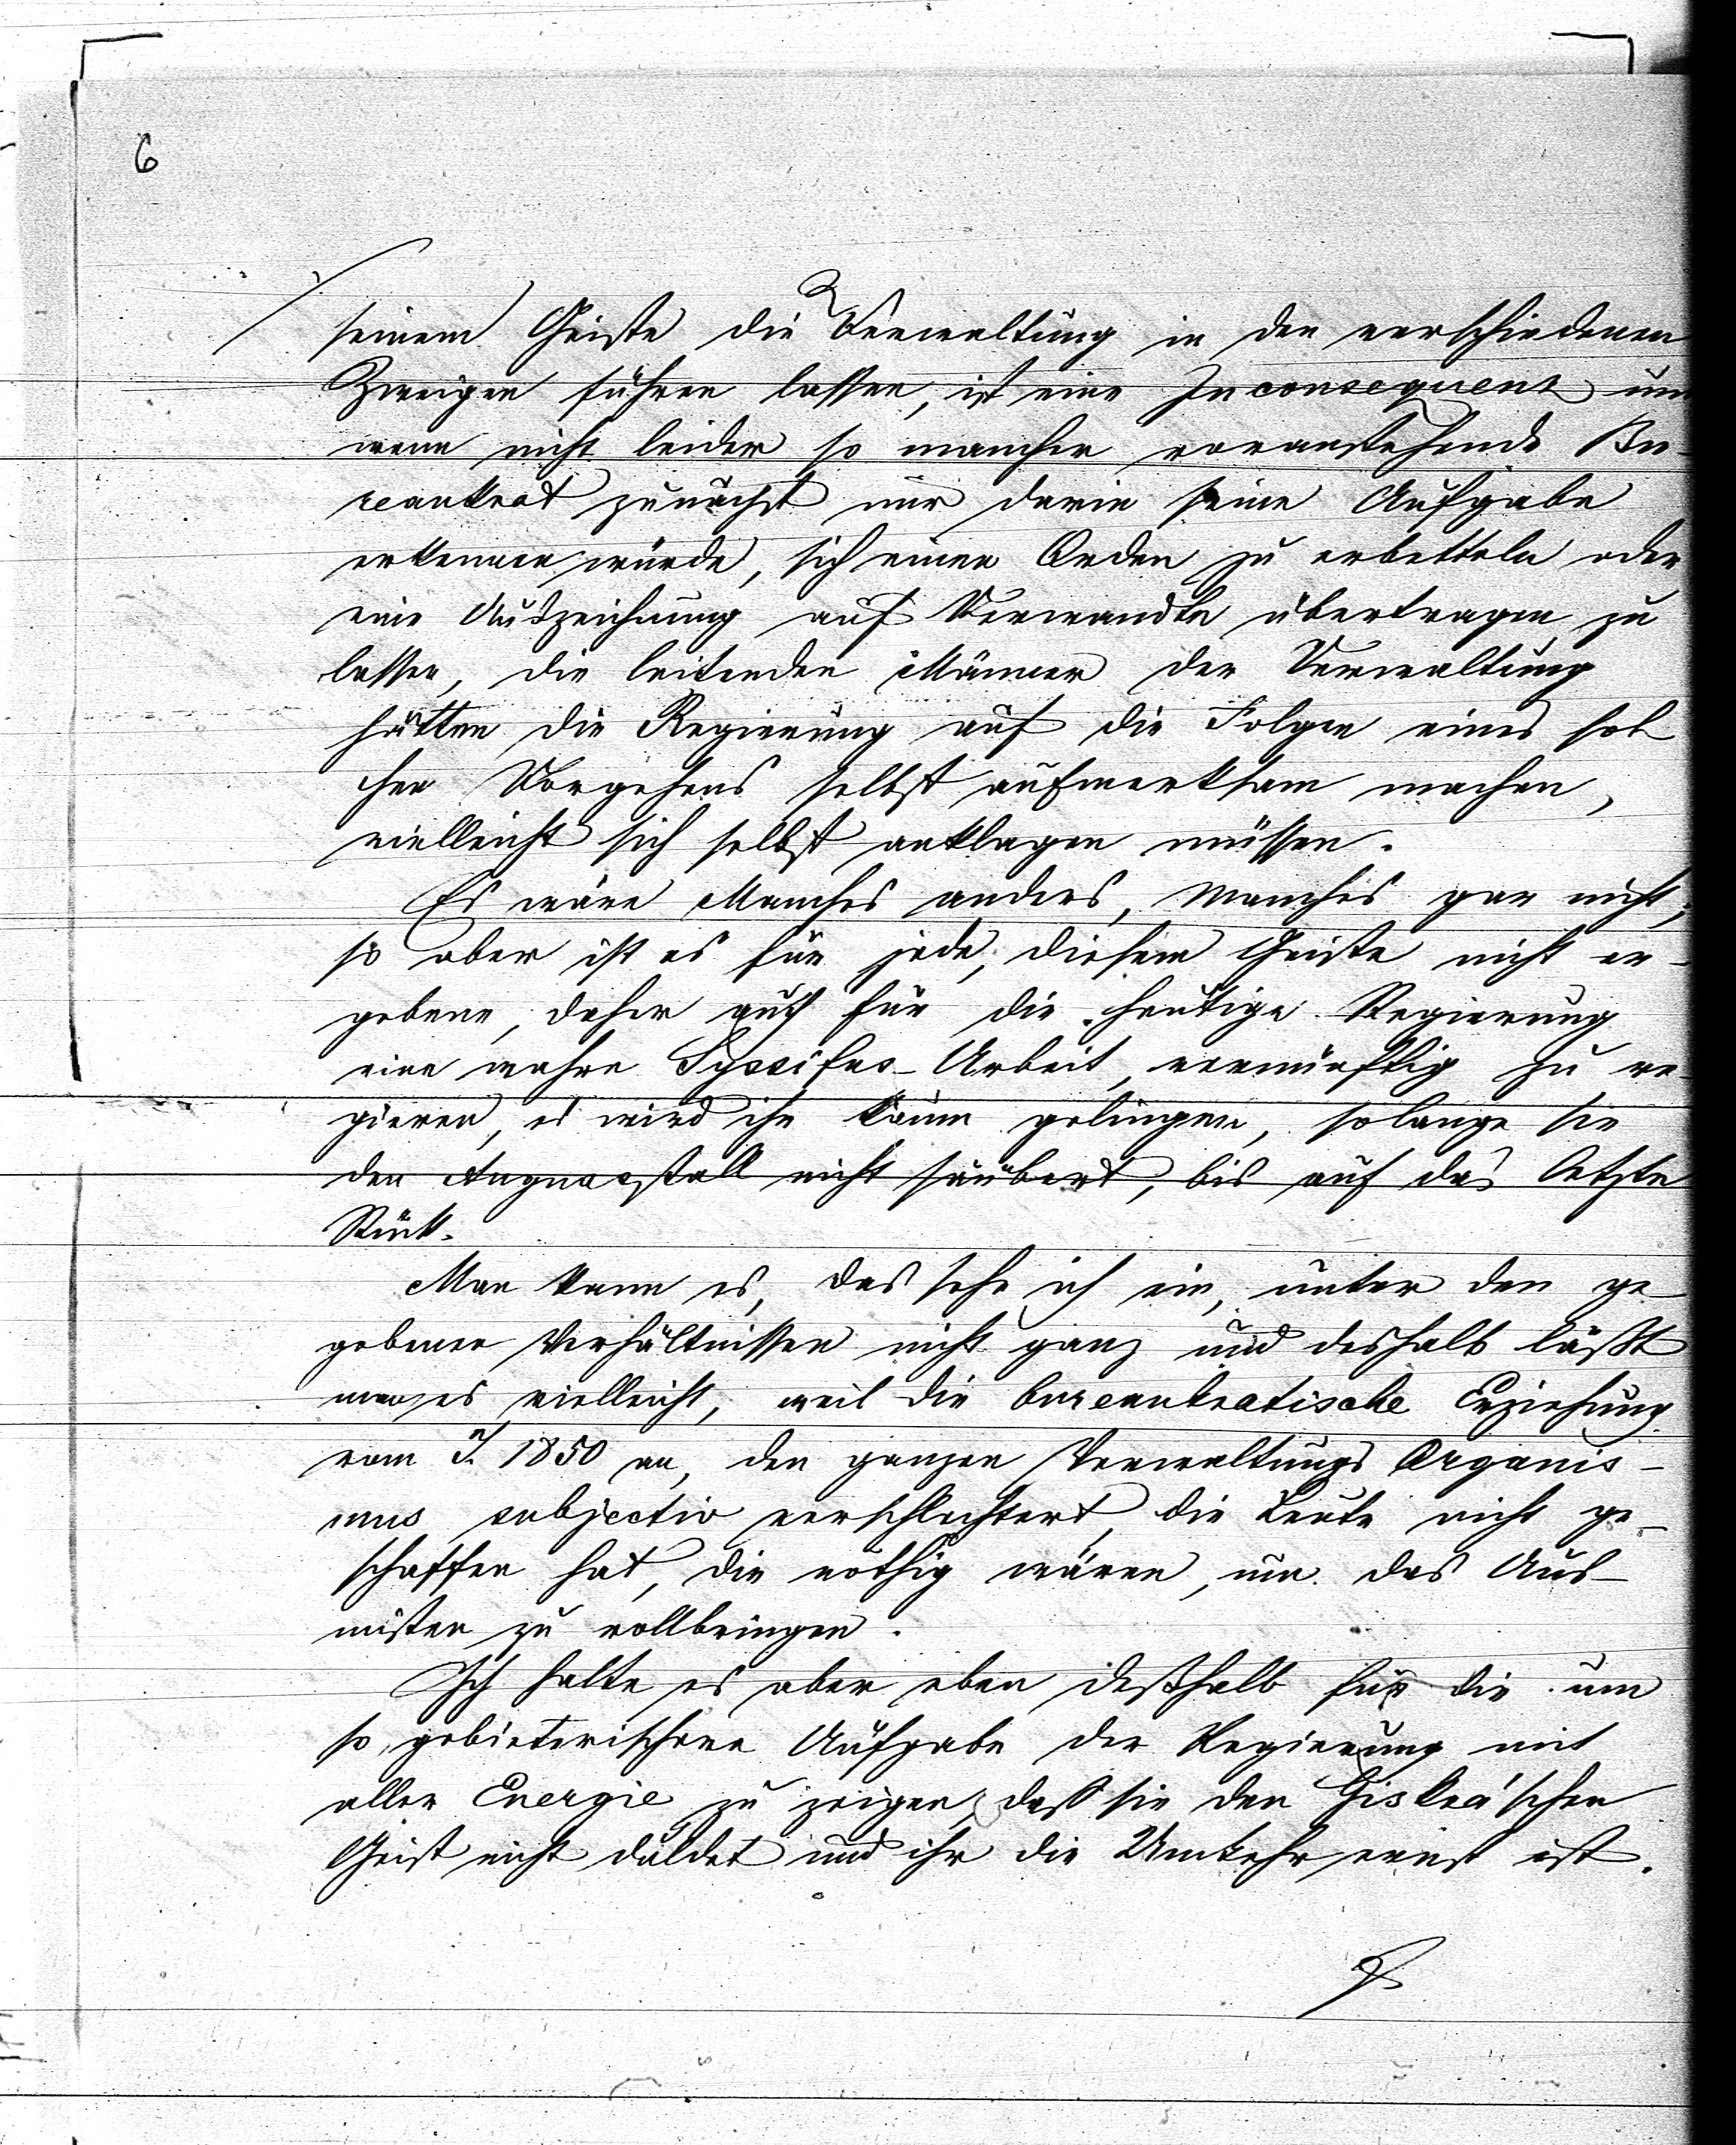 6
seinem Geiste die Verwaltung in den verschiedenen
Zweigen führen lassen, ist eine Inconsequenz und
wenn nicht leider so mancher voranstehende Bu-
reaukrat zunächst nur darin seine Aufgabe
erkennen würde, sich einen Orden zu erbetteln oder
eine Auszeichnung auf Verwandte übertragen zu
lassen, die leitenden Männer der Verwaltung
hätten die Regierung auf die Folgen eines sol
chen Vorgehens selbst aufmerksam machen,
vielleicht sich selbst anklagen müssen.
Es wäre Manches anders, Manches gar nicht;
so aber ist es für jede, diesem Geiste nicht er-
gebene, daher auch für die heutige Regierung
eine wahre Syssifus-Arbeit, vernünftig zu re-
gieren, es wird ihr kaum gelingen, solange sie
den Augiasstall nicht säubert, bis auf das letzte
Stück.
Man kann es, das sehe ich ein, unter den ge-
gebenen Verhältnissen nicht ganz und deshalb läßt
man es vielleicht, weil die bureaukratische Erziehung
vom J. 1850 an, den ganzen Verwaltungs Organis-
mus subjectiv verschlechtert, die Leute nicht ge-
schaffen hat, die nöthig wären, um das Aus-
misten zu vollbringen.
Ich halte es aber eben deßhalb für die um
so gebieterischere Aufgabe der Regierung mit
aller Energie zu zeigen, daß sie den Giskra'schen
Geist nicht duldet und ihr die Umkehr ernst ist.